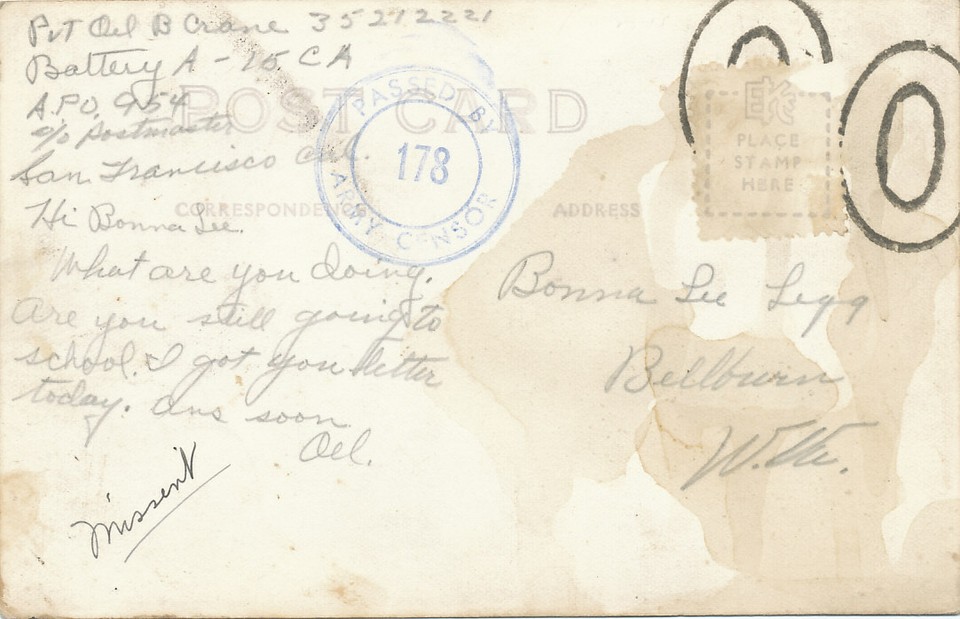 Pvt Oel B Crane 35212221
Battery A - 15 CA
A.P.O. 954
c/o Postmaster
San Francisco Cal.
POST CARD
PASSED BY
178
ARMY CENSOR
EKC
PLACE
STAMP
HERE
CORRESPONDENCE
ADDRESS
Hi Bonna Lee.
What are you doing.
Are you still going to
school. I got you letter
today. Ans soon
Oel.
Missent
Bonna Lee Legg
Bellburn
W.Va.